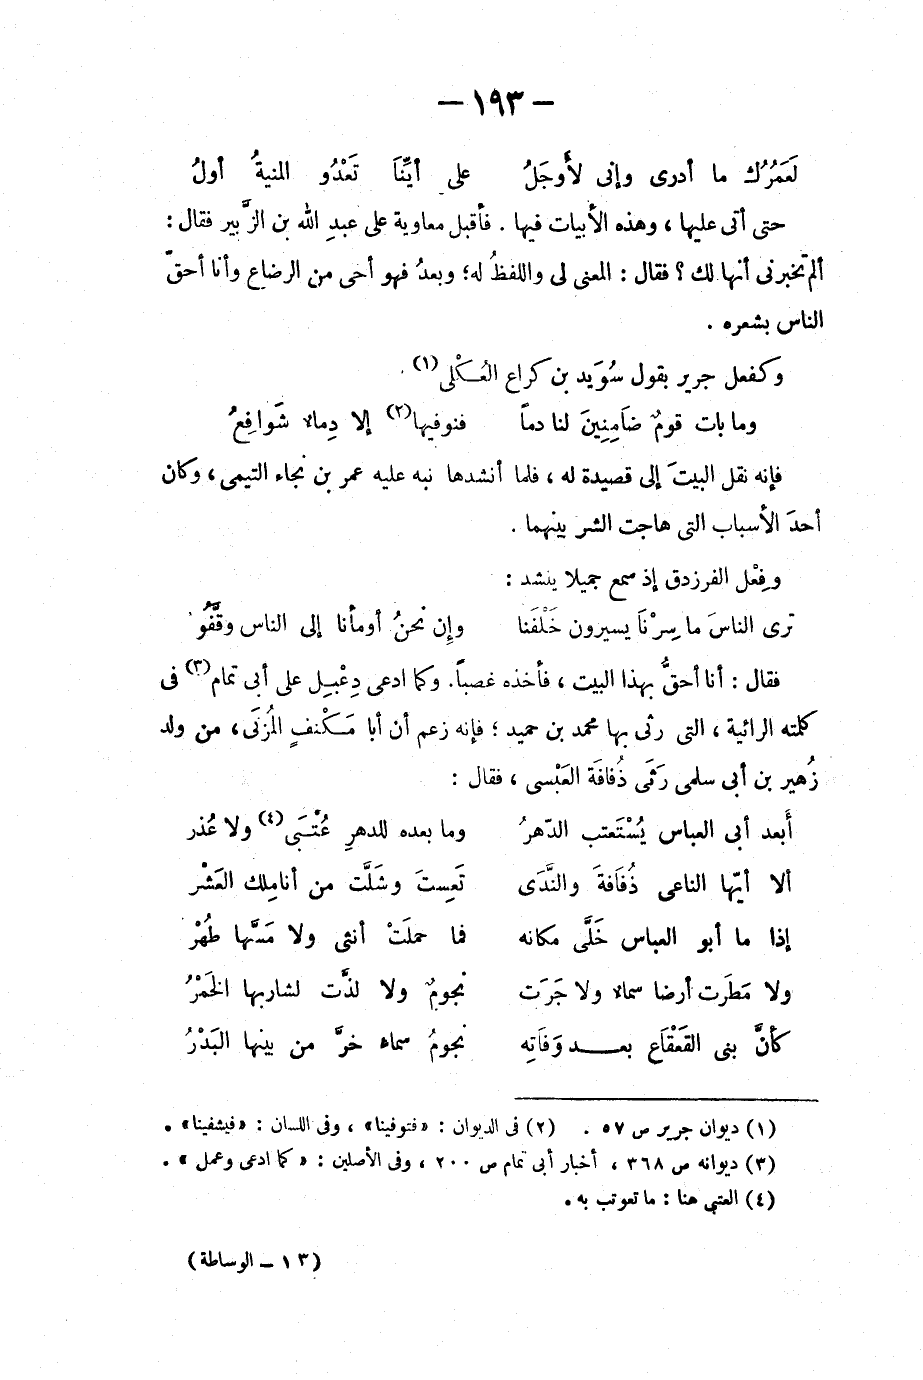 — ١٩٣ —
لَعَمْرُكَ ما أدرى وإنى لأَوجَلُ على أيِّنَا تَعْدُو المنيةُ أولُ
حتى أتى عليها ، وهذه الأبيات فيها . فأقبل معاوية على عبدِ الله بن الزَّبير فقال :
ألم تخبرنى أنها لك ؟ فقال : المعنى لى واللفظُ له؛ وبعدُ فهو أخى من الرضاع وأنا أحقّ
الناس بشعره .
وكفعل جرير بقول سُوَيد بن كراع العُكْلى(١)
وما بات قومٌ ضَامِنِينَ لنا دماً فنوفيها(٢) إلا دِماء شَوافِعُ
فإنه نقل البيتَ إلى قصيدة له ، فلما أنشدها نبه عليه عمر بن نجاء التيمى ، وكان
أحدَ الأسباب التى هاجت الشر بينهما .
وفِعْل الفرزدق إذ سمع جميلا ينشد :
ترى الناسَ ما سِرْنَا يسيرون خَلْفَنا وإِن نحنُ أومأنا إلى الناس وقَّفُوا
فقال : أنا أحقُّ بهذا البيت ، فأخذه غصباً. وكما ادعى دِعْبِل على أبى تمام(٣) فى
كلمته الرائية ، التى رثى بها محمد بن حميد ؛ فإنه زعم أن أبا مَكْنفٍ المُزنَى، من ولد
زُهير بن أبى سلمى رَثَى ذُفافَة العَبْسى ، فقال :
أَبعد أبى العباس يُسْتَعتب الدّهرُ وما بعده للدهرِ عُتْبَى(٤) ولا عُذر
ألا أيّها الناعى ذُفَافةَ والنَّدَى تَعِستَ وشَلَّت من أنامِلك العَشْر
إذا ما أبو العباس خَلَّى مكانه فما حملَتْ أنثى ولا مَسَّها طُهْر
ولا مَطَرت أرضا سماء ولا جَرَت نجومٌ ولا لذَّت لشاربها الخَمْرُ
كأنَّ بنى القَعْقَاع بعد وَفَاتِه نجومُ سماء خرَّ من بينها البَدْرُ
(١) ديوان جرير ص ٥٧ . (٢) فى الديوان : «فتوفينا» ، وفى اللسان : «فيشفينا» .
(٣) ديوانه ص ٣٦٨ ، أخبار أبى تمام ص ٢٠٠ ، وفى الأصلين : « كما ادعى وعمل » .
(٤) العتبى هنا : ما تعوتب به .
(١٣ — الوساطة)